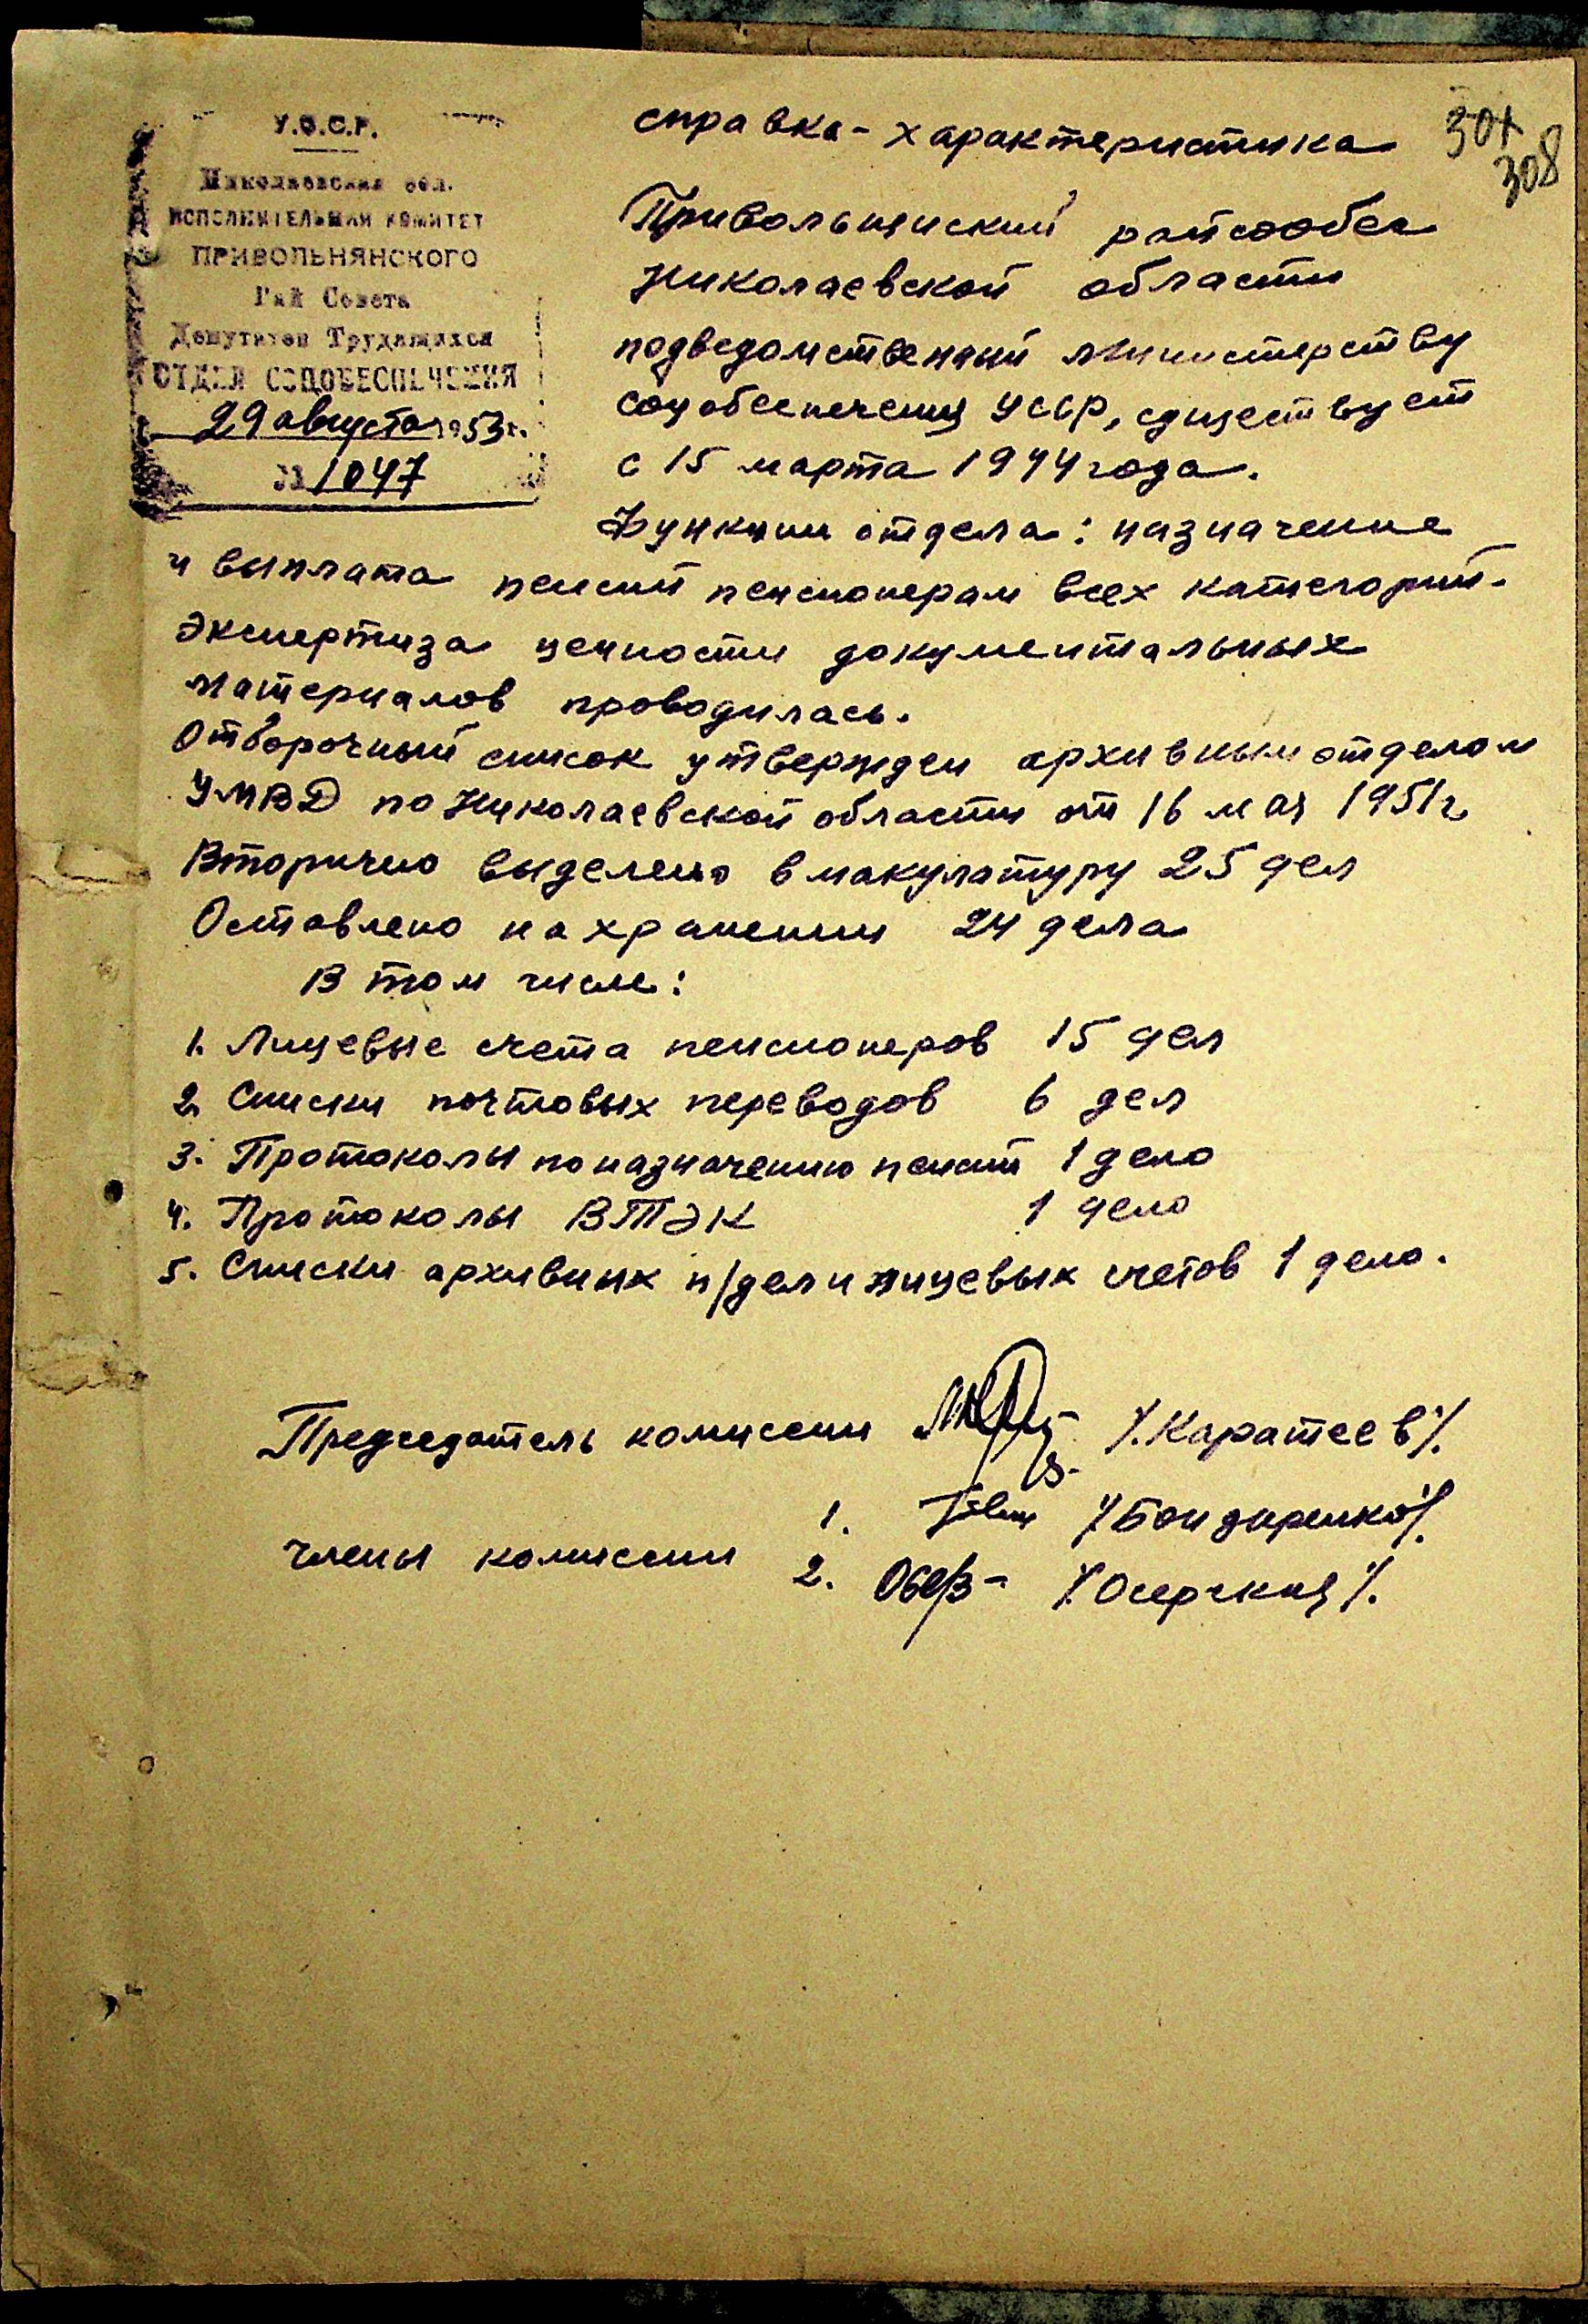 У.С.С.Р.
Николаевская обл.
ИСПОЛНИТЕЛЬНЫЙ КОМИТЕТ
ПРИВОЛЬНЯНСКОГО
Рай Совета
Депутатов Трудящихся
ОТДЕЛ СОЦОБЕСПЕЧЕНИЯ
29 августа 1953 г.
№ 1047
308
справка-характеристика
Привольнянский райсобес
Николаевской области
подведомственный министерству
соцобеспечения УССР, существует
с 15 марта 1944 года.
Функции отдела: назначение
и выплата пенсий пенсионерам всех категорий.
Экспертиза ценности документальных
материалов проводилась.
Отборочный список утвержден архивным отделом
УМВД по Николаевской области от 16 мая 1951 г.
Вторично выделено в макулатуру 25 дел
Оставлено на хранении 24 дела
В том числе:
1. Лицевые счета пенсионеров 15 дел
2. Списки почтовых переводов 6 дел
3. Протоколы по назначению пенсий 1 дело
4. Протоколы ВТЭК 1 дело
5. Списки архивных п/дел и лицевых счетов 1 дело.
Председатель комиссии /.Каратеев/.
члены комиссии 1. /Бондаренко/.
2. /.Осерская/.